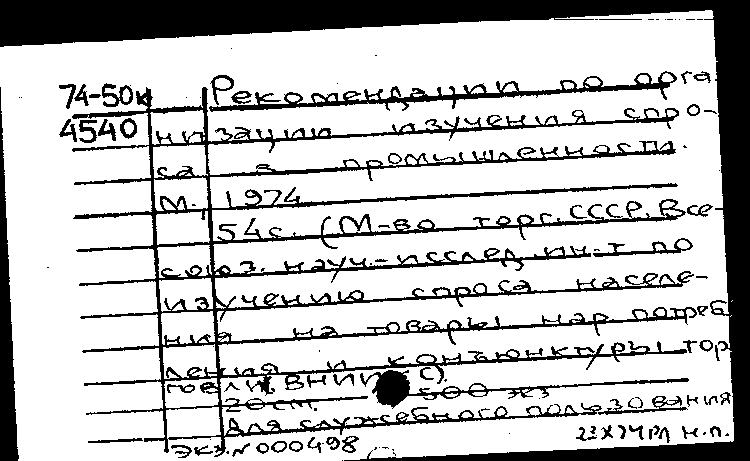 74-50к Рекомендации по орга-
4540 низации изучения спро-
са в промышленности.
М., 1974
54с. (М-во торг. СССР. Все-
союз. науч.-исслед. ин-т по
изучению спроса населе-
ния на товары нар потреб
ления и конъюнктуры тор
говли (ВНИИ С).
20см. 500 экз
Для служебного пользования
экз.№000498 23X74РЛ н.п.